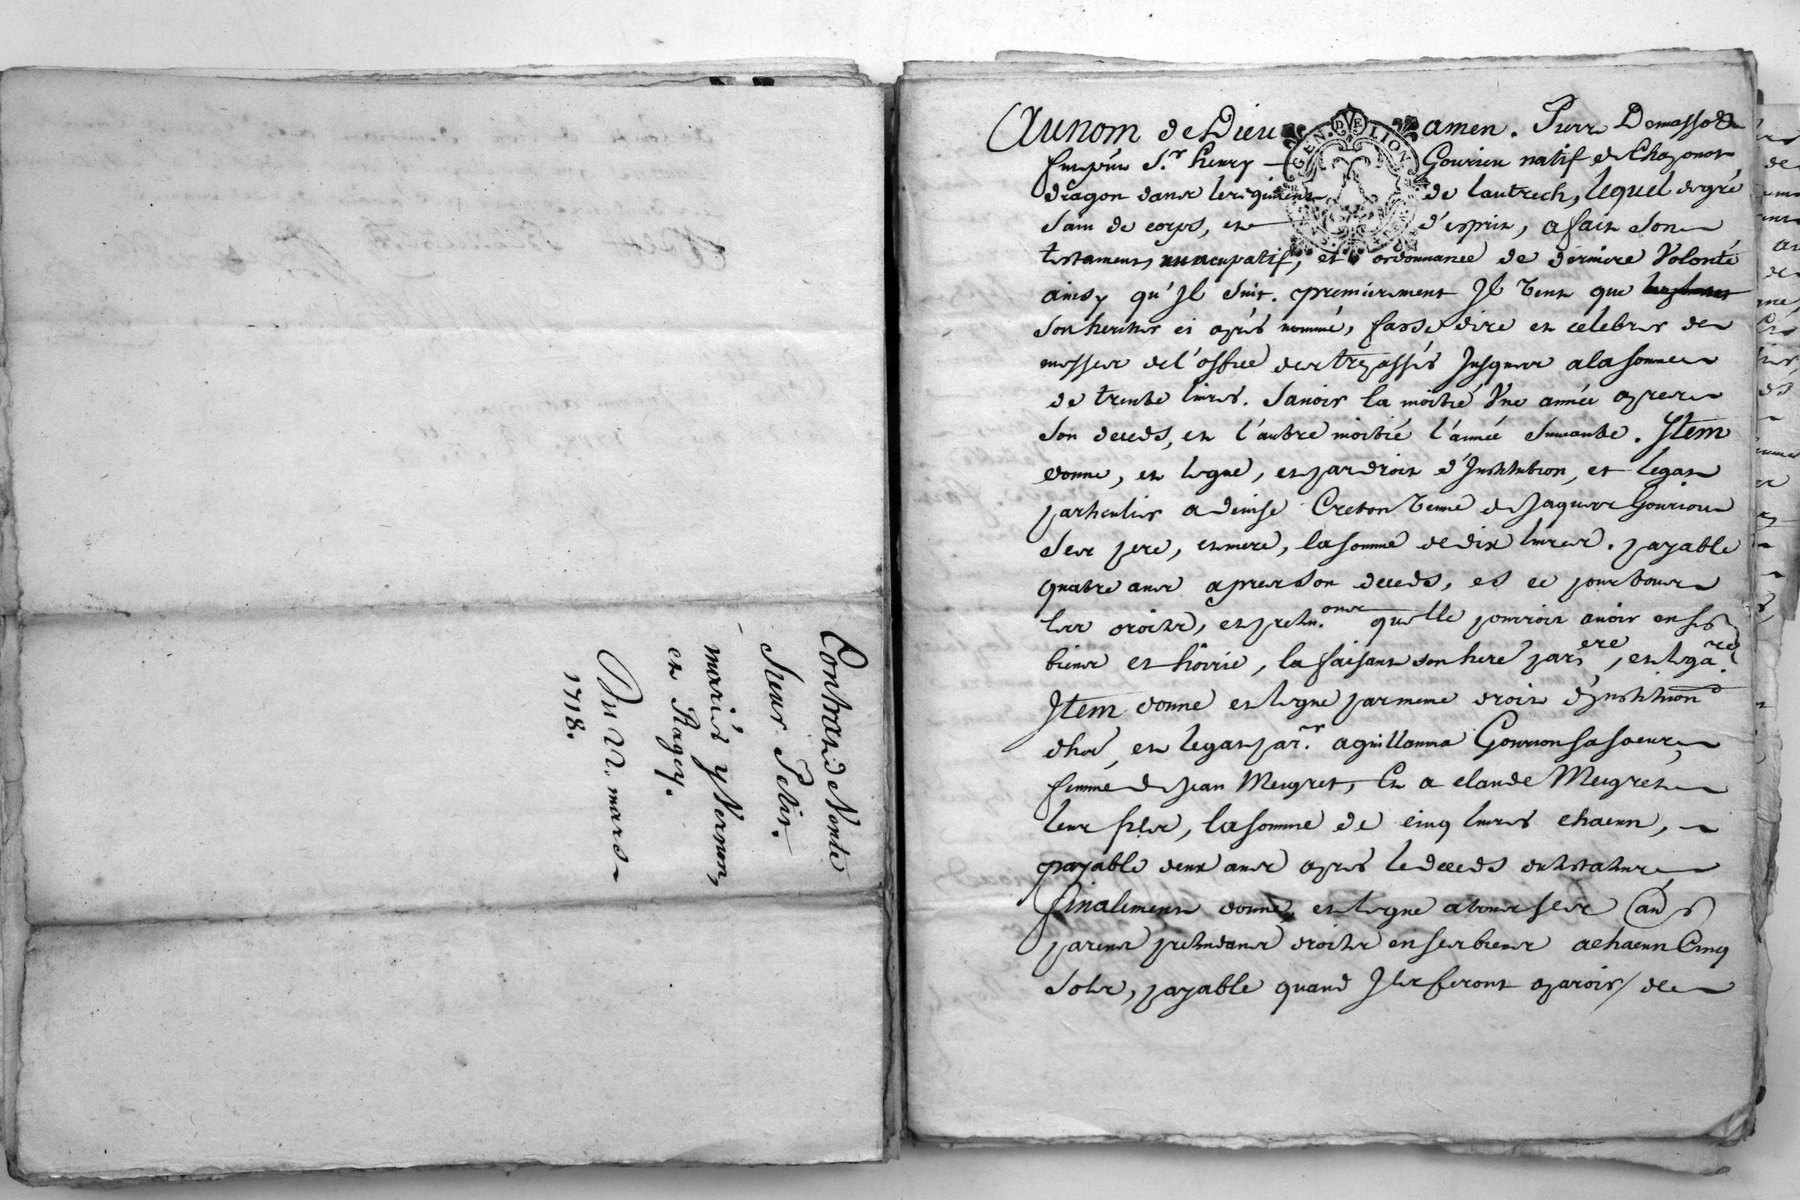 Contract Vente
Sieur Petit.
mariés y Vernun,
et Ragey.
Du 22. mars
1718.
GEN. DE LION
Au nom de Dieu amen. Pierre
Sr. henry Gourieu natif de Chazonot
dragon dans le regiment de lautrech, lequel de gré
sain de corps, et d'esprit, a fait son
testament nuncupatif, et ordonnance de derniere Volonté
ainsy qu'Jl suit. premierement Jl veut que
son heritier ci après nommé, fasse dire et celebrer de
messes de l'office des trepassés Jusques a la somme
de trente livres. Savoir la moitié Vne année apres
son deceds, et l'autre moitié l'année suivante. Jtem
donne, et legue, et par droit d'Jnstitution, et legat
particulier a denise Creton veuve de Jaques Gouriou
ses pere, et mere, la somme de dix livres. payable
quatre ans apres son deceds, et ce pour tous
les droits, et preten.ons quelle pouroit avoir en ses
biens et hoirie, la faisant son here par.ere, et lega.re
Jtem donne et legue par meme droit d'Jnstitution
d'her, et legat par.er a guillauma Gourion sa soeur,
femme de Jean Meigret, Et a claude Meigret
leur fils, la somme de cinq livres chacun,
payable deux ans après le deceds du testateur
finalement donne, et legue a tous ses
parens pretendans droits en ses biens a chacun Cinq
sols, payable quand Jls feront aparoir de